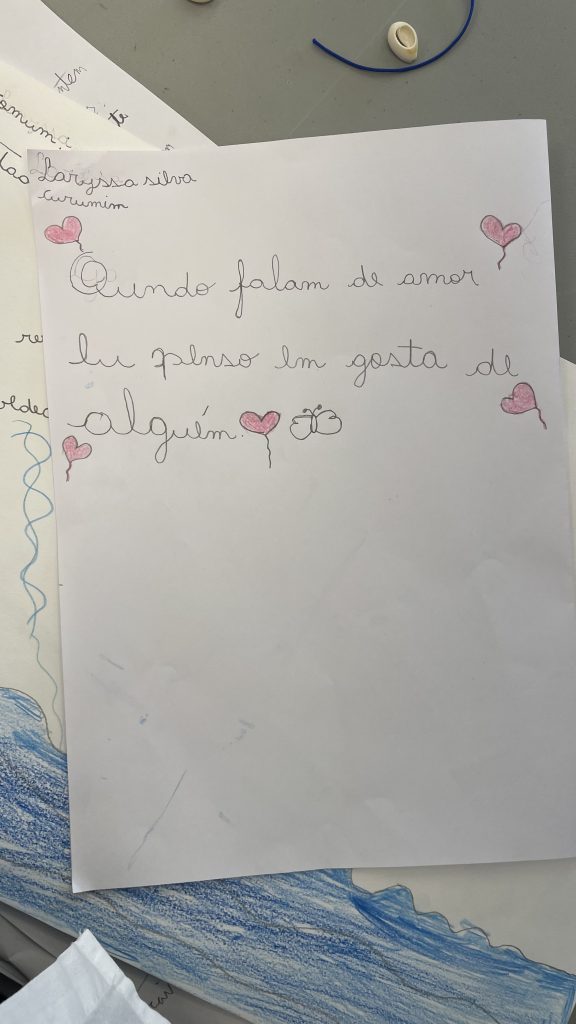 Laryssa silva
curumim
Qundo falam de amor
Eu penso em gosta de
alguém.